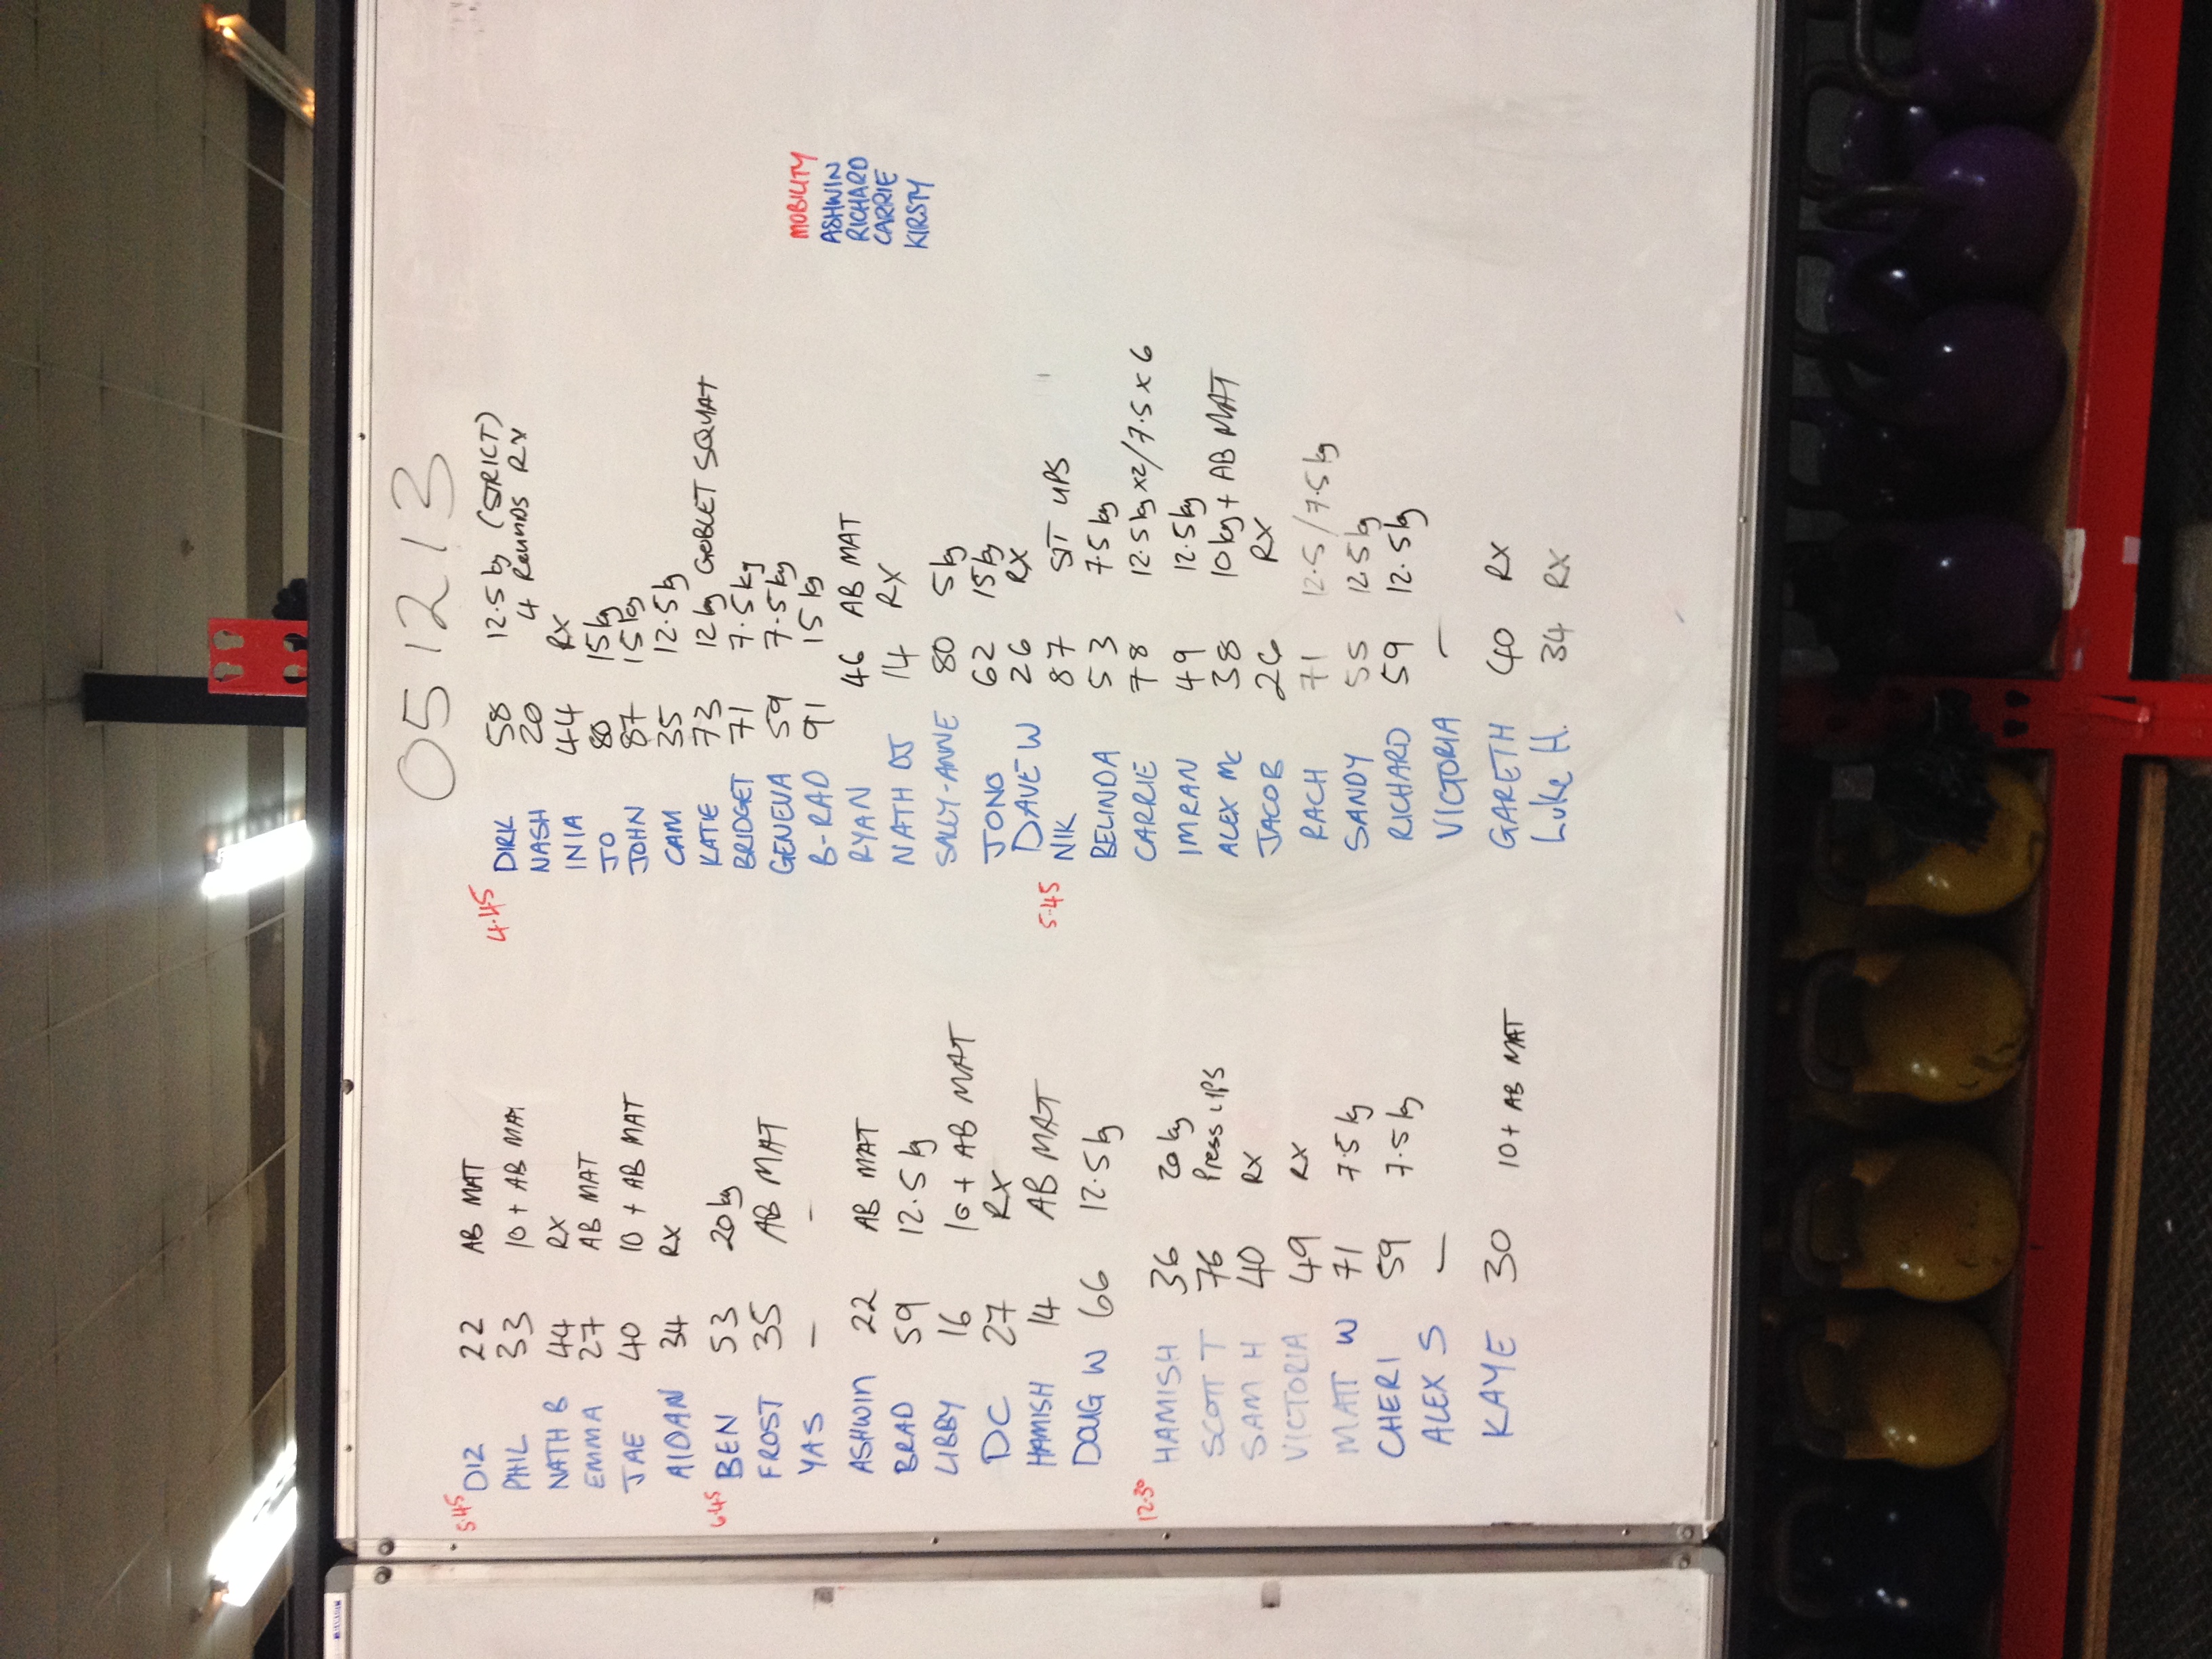 051213
5.45
DIZ 22 AB MAT
PHIL 33 10 + AB MAT
NATH B 44 RX
EMMA 27 AB MAT
JAE 40 10 + AB MAT
AIDAN 34 RX
6.45
BEN 53 20 kg
FROST 35 AB MAT
YAS - -
ASHWIN 22 AB MAT
BRAD 59 12.5 kg
LIBBY 16 10 + AB MAT
DC 27 RX
HAMISH 14 AB MAT
DOUG W 66 12.5 kg
12.30
HAMISH 36 20 kg
SCOTT T 76 Press UPS
SAM H 40 RX
VICTORIA 49 RX
MATT W 71 7.5 kg
CHERI 59 7.5 kg
ALEX S -
KAYE 30 10 + AB MAT
4.45
DIRK 58 12.5 kg (STRICT)
NASH 20 4 Rounds RX
INIA 44 RX
JO 80 15 kg
JOHN 87 15 kg
CAM 35 12.5 kg
KATIE 73 12 kg GOBLET SQUAT
BRIDGET 71 7.5 kg
GENEVA 59 7.5 kg
B-RAD 91 15 kg
RYAN 46 AB MAT
NATH DJ 14 RX
SALLY-ANNE 80 5 kg
JONO 62 15 kg
DAVE W 26 RX
5.45
NIK 87 SIT UPS
BELINDA 53 7.5 kg
CARRIE 78 12.5 kg x2/7.5 x 6
IMRAN 49 12.5 kg
ALEX Mc 38 10 kg + AB MAT
JACOB 26 RX
RACH 71 12.5/7.5 kg
SANDY 55 12.5 kg
RICHARD 59 12.5 kg
VICTORIA -
GARETH 40 RX
Luke H. 34 RX
MOBILITY
ASHWIN
RICHARD
CARRIE
KIRSTY